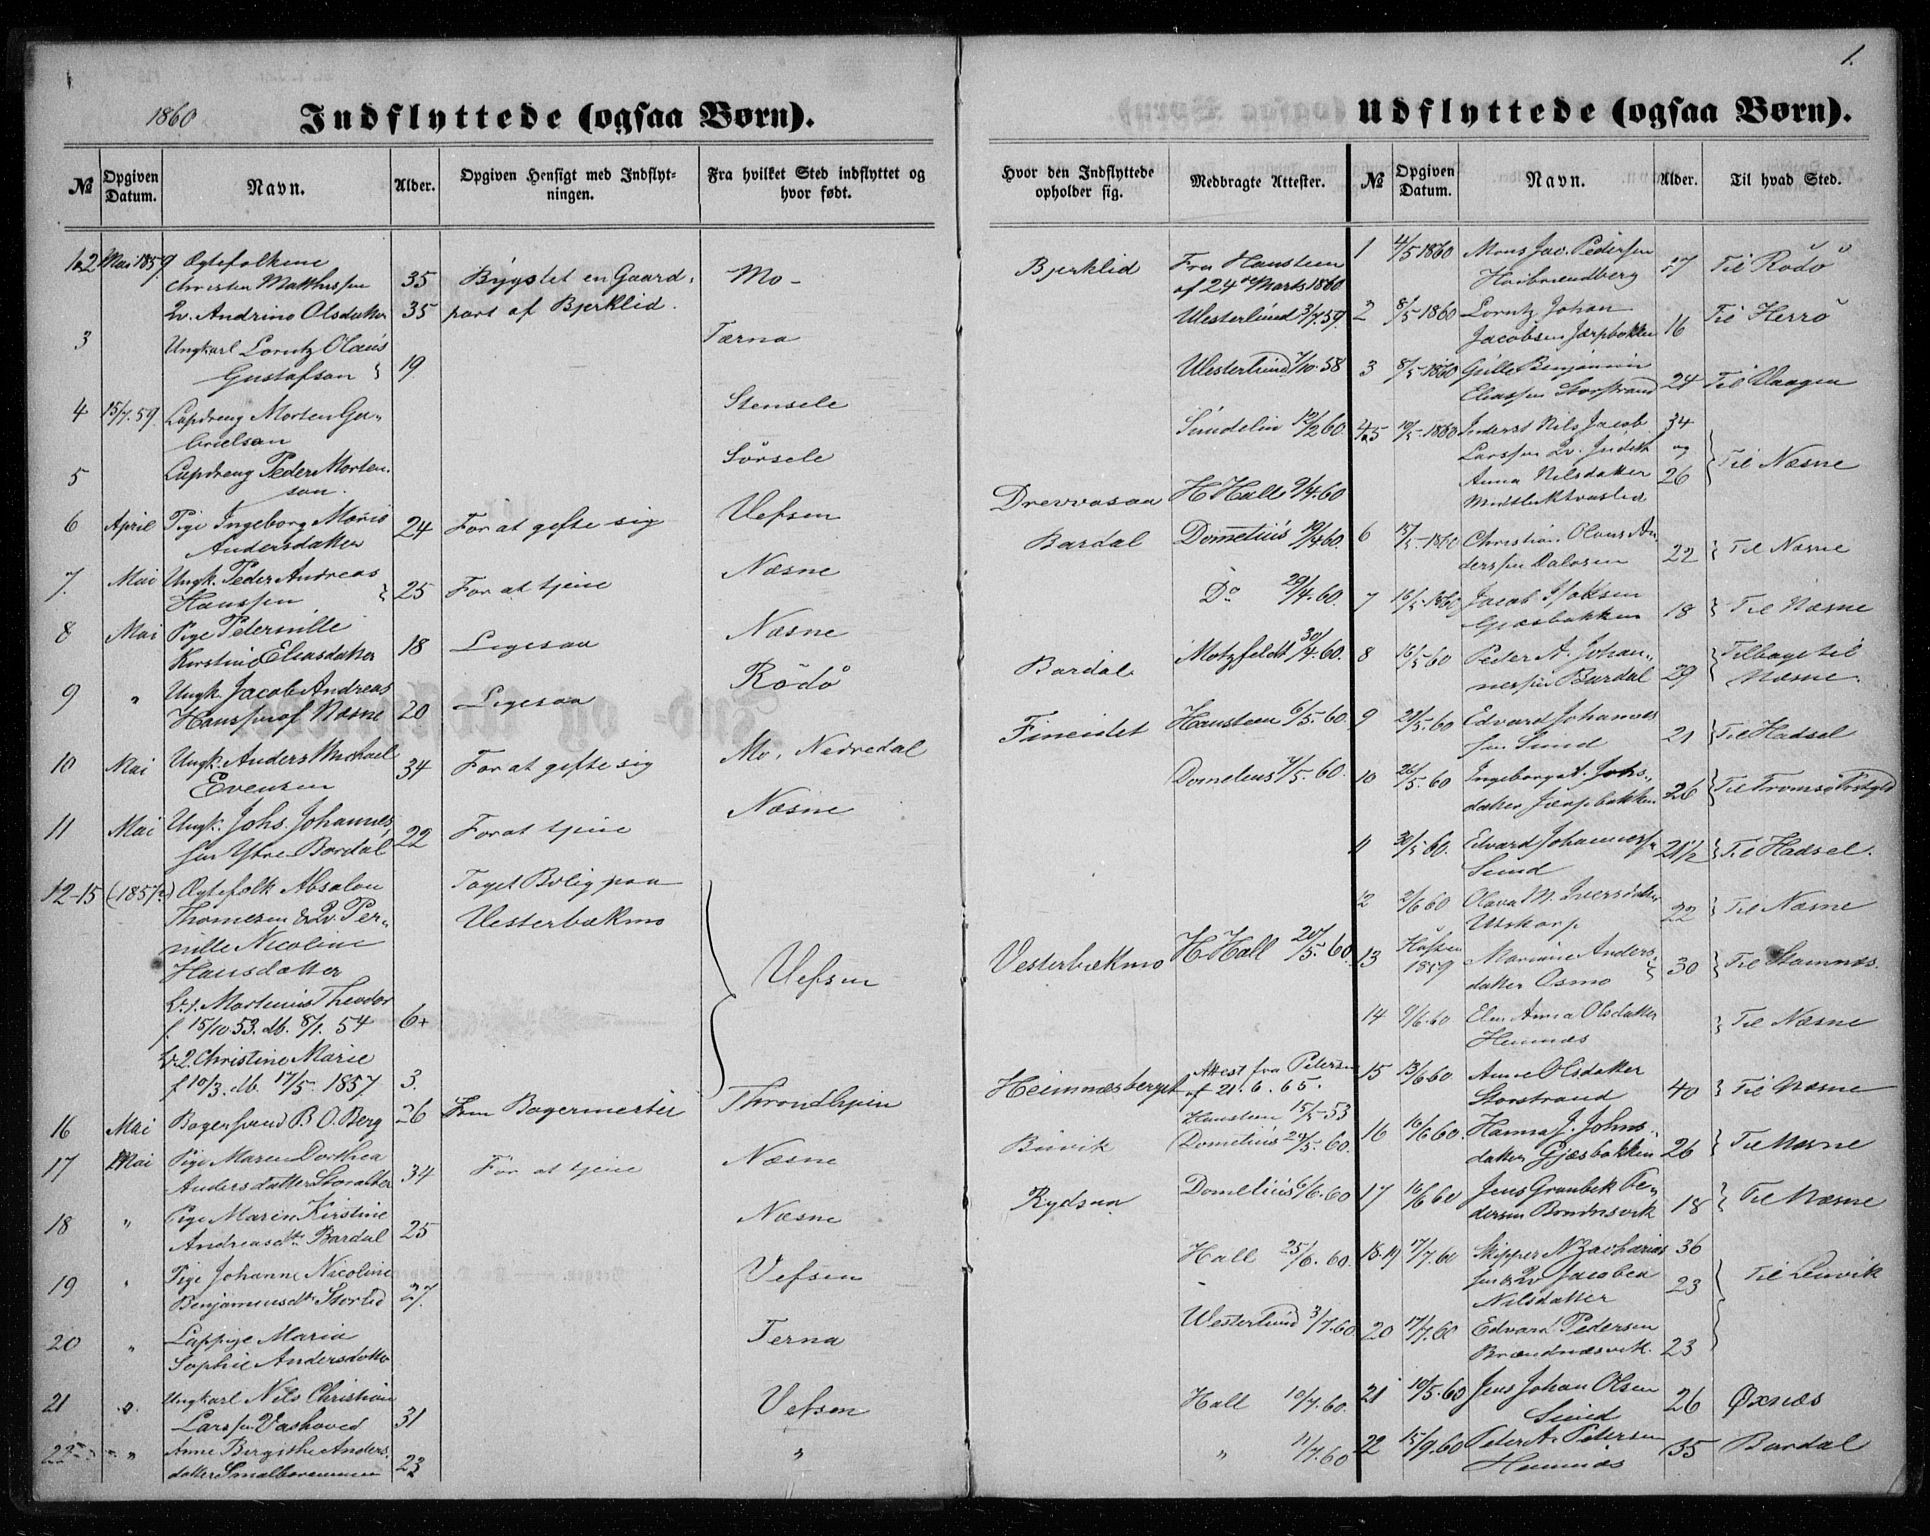 1.
1860
Indflyttede (ogsaa Børn).
Udflyttede (ogsaa Børn).
№
Opgiven Datum.
Navn.
Alder.
Opgiven Hensigt med Indflyt-
ningen.
Fra hvilket Sted indflyttet og
hvor født.
Hvor den Indflyttede
opholder sig.
Medbragte Attester.
№
Opgiven Datum.
Navn.
Alder.
Til hvad Sted.
1.2 Mai 1859 Ægtefolkene
Christen Matthissen 35 Bygslet en Gaard- Mo-
Andrine Olsdatter 35 part af Bjerklid.
3 Ungkarl Lorntz Olaus Tærna
Gustafson 19
4 15/7.59. Lapdreng Morten Ga-
brielson Stensele
5 Lapdreng Peder Morten- Sørsele
son.
6 April Pige Ingeborg Maria 24 For at gifte sig Vefsen
Andersdatter
7. Mai Ungk. Peder Andreas 25 For at tjene Næsne
Hanssen
8 Mai Pige Peternille
Kirstine Eliasdatter 18 Ligesaa Næsne
9 " Ungk. Jacob Andreas Rödö
Hanssen af Næsne 20 Ligesaa
10 Mai Ungk. Anders Michael 34 For at gifte sig Mo, Nedredal
Evensen
11 Mai Ungk. Johs. Johannes-
sen Ytre Bardal 22 For at tjene Næsne
12-15 (1857) Ægtefolk Absalon Taget Bolig paa
Thomesen & Per- Vesterbækmo
nille Nicoline
Hansdatter Vefsen
Martinus Theodor
f. 15/10 53. db. 8/1. 54 6
2. Christine Marie
f 10/3. db. 17/5. 1857 3.
16 Mai Bagersvend B. O. Berg 26 Som Bagermester Throndhjem
17 Mai Pige Maren Dorthea
Andersdatter 34 For at tjene Næsne
18 " Pige Maren Kirstine
Andreasdtr Bardal 25 Næsne
19 " Pige Johanne Nicoline
Benjaminsdtr Storlid 27. Vefsen
20 " Lappige Maria
Sophie Andersdatter Terna
21 " Ungkarl Nils Christian
Larssen Vashoved 31 Vefsen
22 " Anne Andersdatter 23 "
Bjerklid Fra Hansteen
af 24de Marts 1860
Westerlund 3/7.59.
Westerlund 58
Sundelin 12/2 60.
Drevvasaa H Hall 9/4.60
Bardal Dometius 19/4 60.
Do 29/4.60.
Bardal Motzfeldt 30/4.60.
Fineidet Hansteen 6/5.60.
Dometius 7/5.60.
Vesterbækmo H. Hall 20/5.60.
Heimnæsberget Attest fra Petersen
af 21.6.65.
Hansteen 15/5-53
Dometius 29/5.60.
Rydsaa Dometius 6/6.60
Hall 25/6.60.
Westerlund 3/7.60
Hall 10/7.60.
" 11/7.60
1 4/5 1860 Mons Jac. Pedersen
17 Til Rödö
2 8/5 1860 Lorntz Johan
Jacobsen Jærpbakken 16 Til Herrö
3 8/5-1860 Benjamin
Eliassen Storstrand 24 Til Vaagen
4.5 10/5-1860 Inderst Nils Jacob 34
Larssen Judith og
Anna Nilsdatter 26 Til Næsne
6 15/5-1860 Christian Olaus An-
derssen Dalosen 22 Til Næsne
7 16/5-1860 Jacob Isaksen
Gjæsbakken 18 Til Næsne
8 16/5 60 Peder A. Johan-
nessen Bardal 29 Tilbage til
Næsne.
9 21/5.60 Edvard Johannes
sen Sund 21 Til Hadsel
10 26/5.60 Ingeborg A. Johs.-
datter Jærpbakken 26 Til Tromsö
11 30/5 60. Edvard Johannessen
Sund 21 1/2 Til Hadsel.
12 2/6 60 Olava M. Iversdatter
Utskarp 22 Til Næsne
13 Høsten
1859 Mariane Anders-
datter Osmo 30 Til Stamnæs.
14 9/6.60 Elen Anna Olsdatter
Hemnæs Til Næsne
15 13/6 60 Anne Olsdatter
Storstrand 40 Til Næsne
16 16/6 60. Hanna J. Johns-
datter Gjæsbakken 26 Til Næsne
17 16/6 60 Jens Grønbek Pe-
dersen 18 Til Næsne
18-19 17/7.60 Skipper N. Zacharias 36
sen & Jacobea
Nilsdatter 23 Til Lenvik
20 17/7.60 Edvard Pedersen
Brændnæsvik. 23
21 10/5.60 Jens Johan Olsen
Sund 26 Øxnæs
22 15/9.60 Peter A. Petersen
Hemnæs 35 Bardal